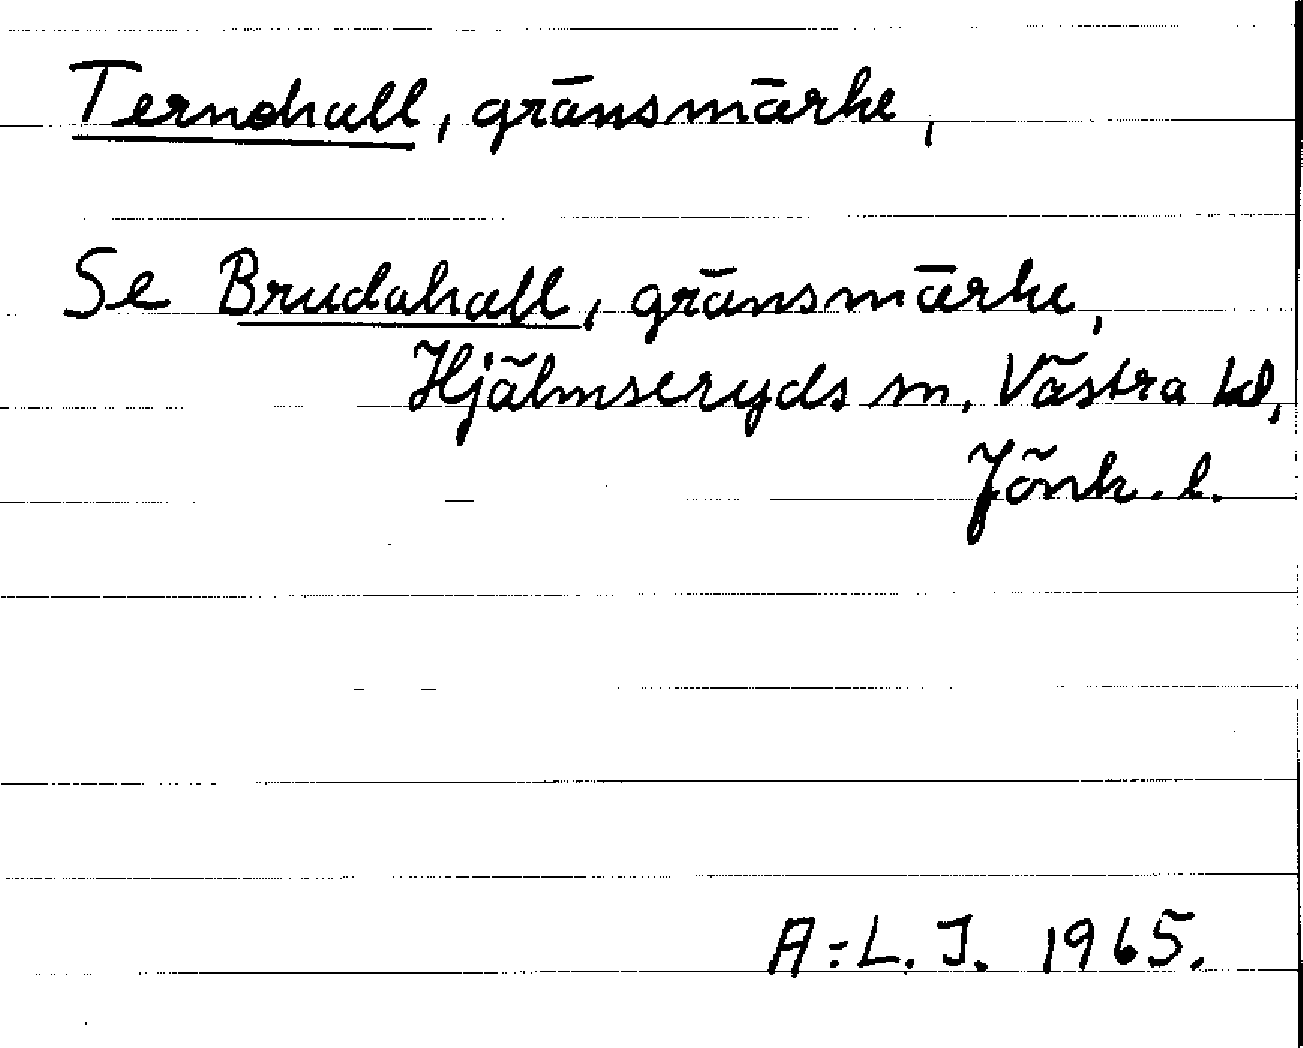 Ternohall, gränsmärke,
Se Brudahall, gränsmärke,
Hjälmseryds sn, Västra hd,
Jönk. l.
A-L. J. 1965.